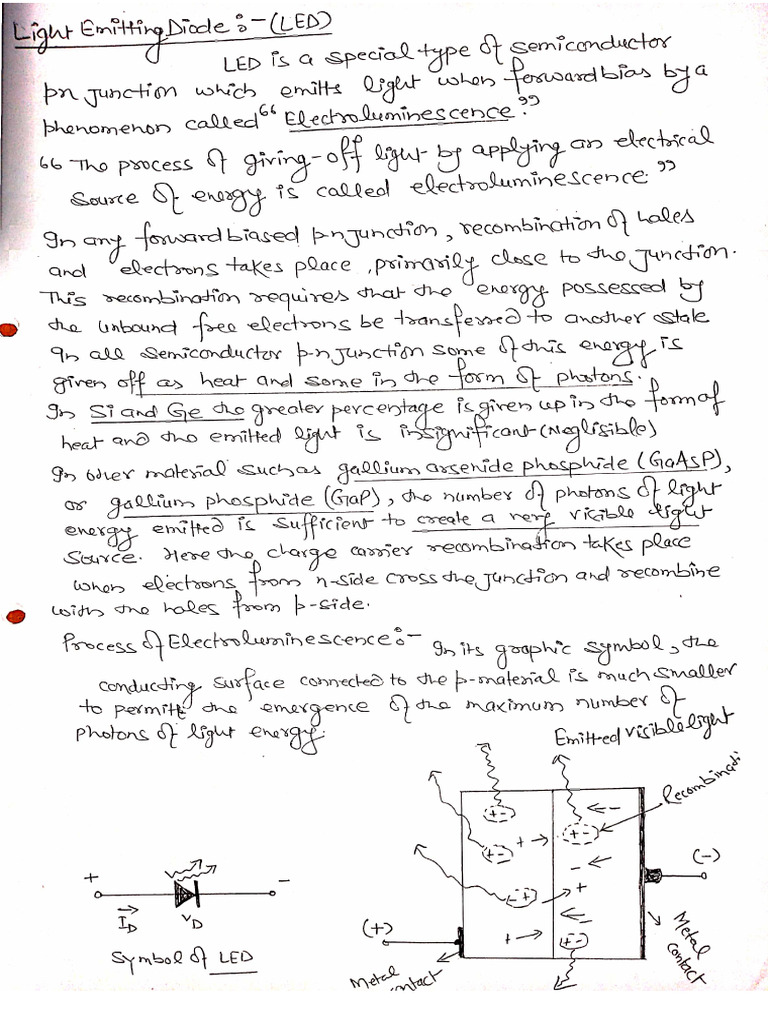 Light Emitting Diode :- (LED)
LED is a special type of semiconductor
pn junction which emitts light when forward bias by a
phenomenon called "Electroluminescence."
"The process of giving-off light by applying an electrical
source of energy is called electroluminescence."
In any forward biased p-n junction, recombination of holes
and electrons takes place, primarily close to the junction.
This recombination requires that the energy possessed by
the unbound free electrons be transferred to another state
In all semiconductor p-n junction some of this energy is
given off as heat and some in the form of photons.
In Si and Ge the greater percentage is given up in the form of
heat and the emitted light is insignificant (Neglisible)
In other material such as gallium arsenide phosphide (GaAsP),
or gallium phosphide (GaP), the number of photons of light
energy emitted is sufficient to create a very visible light
source. Here the charge carrier recombination takes place
when electrons from n-side cross the junction and recombine
with the holes from p-side.
Process of Electroluminescence :- In its graphic symbol, the
conducting surface connected to the p-material is much smaller
to permitt the emergence of the maximum number of
photons of light energy.
Emitted visible light
Recombinati
+ -
I_D
V_D
Symbol of LED
(+)
(-)
Metal
contact
Metal
ontact